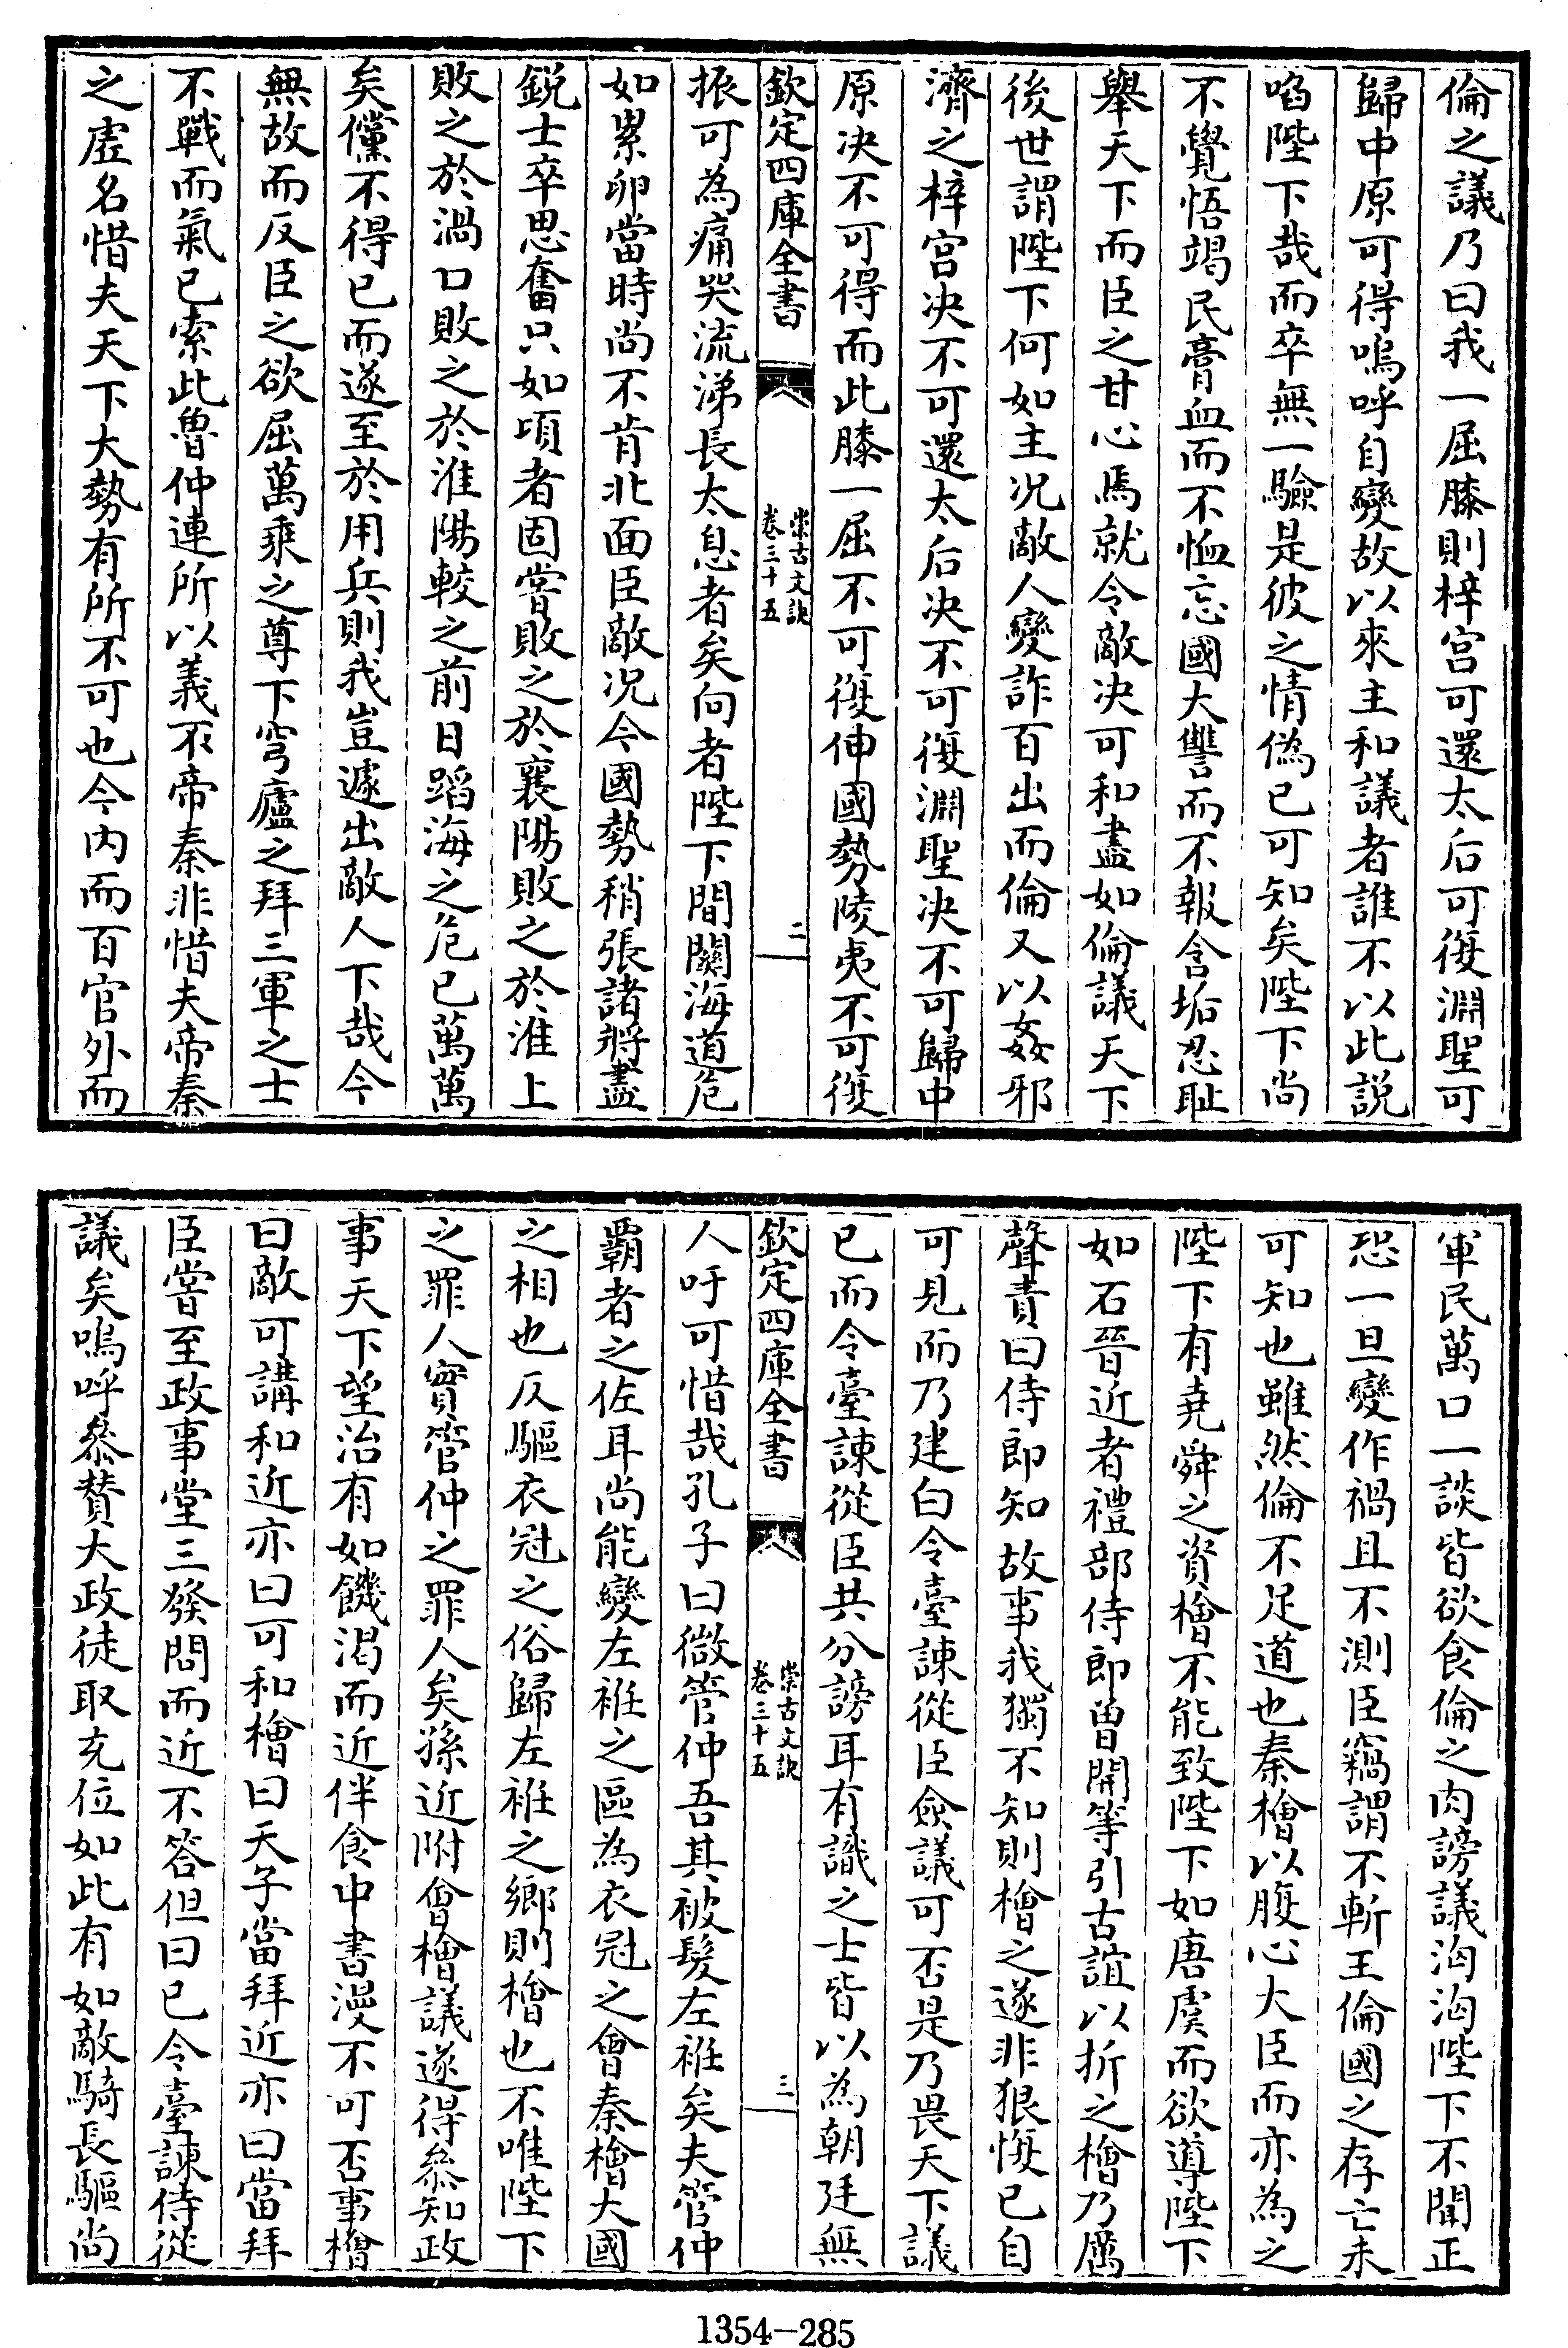 倫之議乃曰我一屈膝則梓宫可還太后可復淵聖可
歸中原可得嗚呼自變故以來主和議者誰不以此説
啗陛下哉而卒無一驗是彼之情偽已可知矣陛下尚
不覺悟竭民膏血而不恤忘國大讐而不報含垢忍恥
舉天下而臣之甘心焉就令敵决可和盡如倫議天下
後世謂陛下何如主况敵人變詐百出而倫又以姦邪
濟之梓宫决不可還太后决不可復淵聖决不可歸中
原决不可得而此膝一屈不可復伸國勢陵夷不可復
欽定四庫全書
崇古文訣
卷三十五
二
振可為痛哭流涕長太息者矣向者陛下間關海道危
如累卵當時尚不肯北面臣敵况今國勢稍張諸將盡
鋭士卒思奮只如項者固嘗敗之於襄陽敗之於淮上
敗之於渦口敗之於淮陽較之前日蹈海之危已萬萬
矣儻不得已而遂至於用兵則我豈遽出敵人下哉今
無故而反臣之欲屈萬乘之尊下穹廬之拜三軍之士
不戰而氣已索此魯仲連所以義不帝秦非惜夫帝秦
之虚名惜夫天下大勢有所不可也今内而百官外而
軍民萬口一談皆欲食倫之肉謗議洶洶陛下不聞正
恐一旦變作禍且不測臣竊謂不斬王倫國之存亡未
可知也雖然倫不足道也秦檜以腹心大臣而亦為之
陛下有堯舜之資檜不能致陛下如唐虞而欲導陛下
如石晉近者禮部侍郎曾開等引古誼以折之檜乃厲
聲責曰侍郎知故事我獨不知則檜之遂非狠愎已自
可見而乃建白令臺諫從臣僉議可否是乃畏天下議
已而令臺諫從臣共分謗耳有識之士皆以為朝廷無
欽定四庫全書
崇古文訣
卷三十五
三
人吁可惜哉孔子曰微管仲吾其被髮左袵矣夫管仲
覇者之佐耳尚能變左袵之區為衣冠之會秦檜大國
之相也反驅衣冠之俗歸左袵之鄉則檜也不唯陛下
之罪人實管仲之罪人矣孫近附會檜議遂得叅知政
事天下望治有如饑渴而近伴食中書漫不可否事檜
曰敵可講和近亦曰可和檜曰天子當拜近亦曰當拜
臣嘗至政事堂三發問而近不答但曰已令臺諫侍從
議矣嗚呼叅贊大政徒取充位如此有如敵騎長驅尚
1354-285